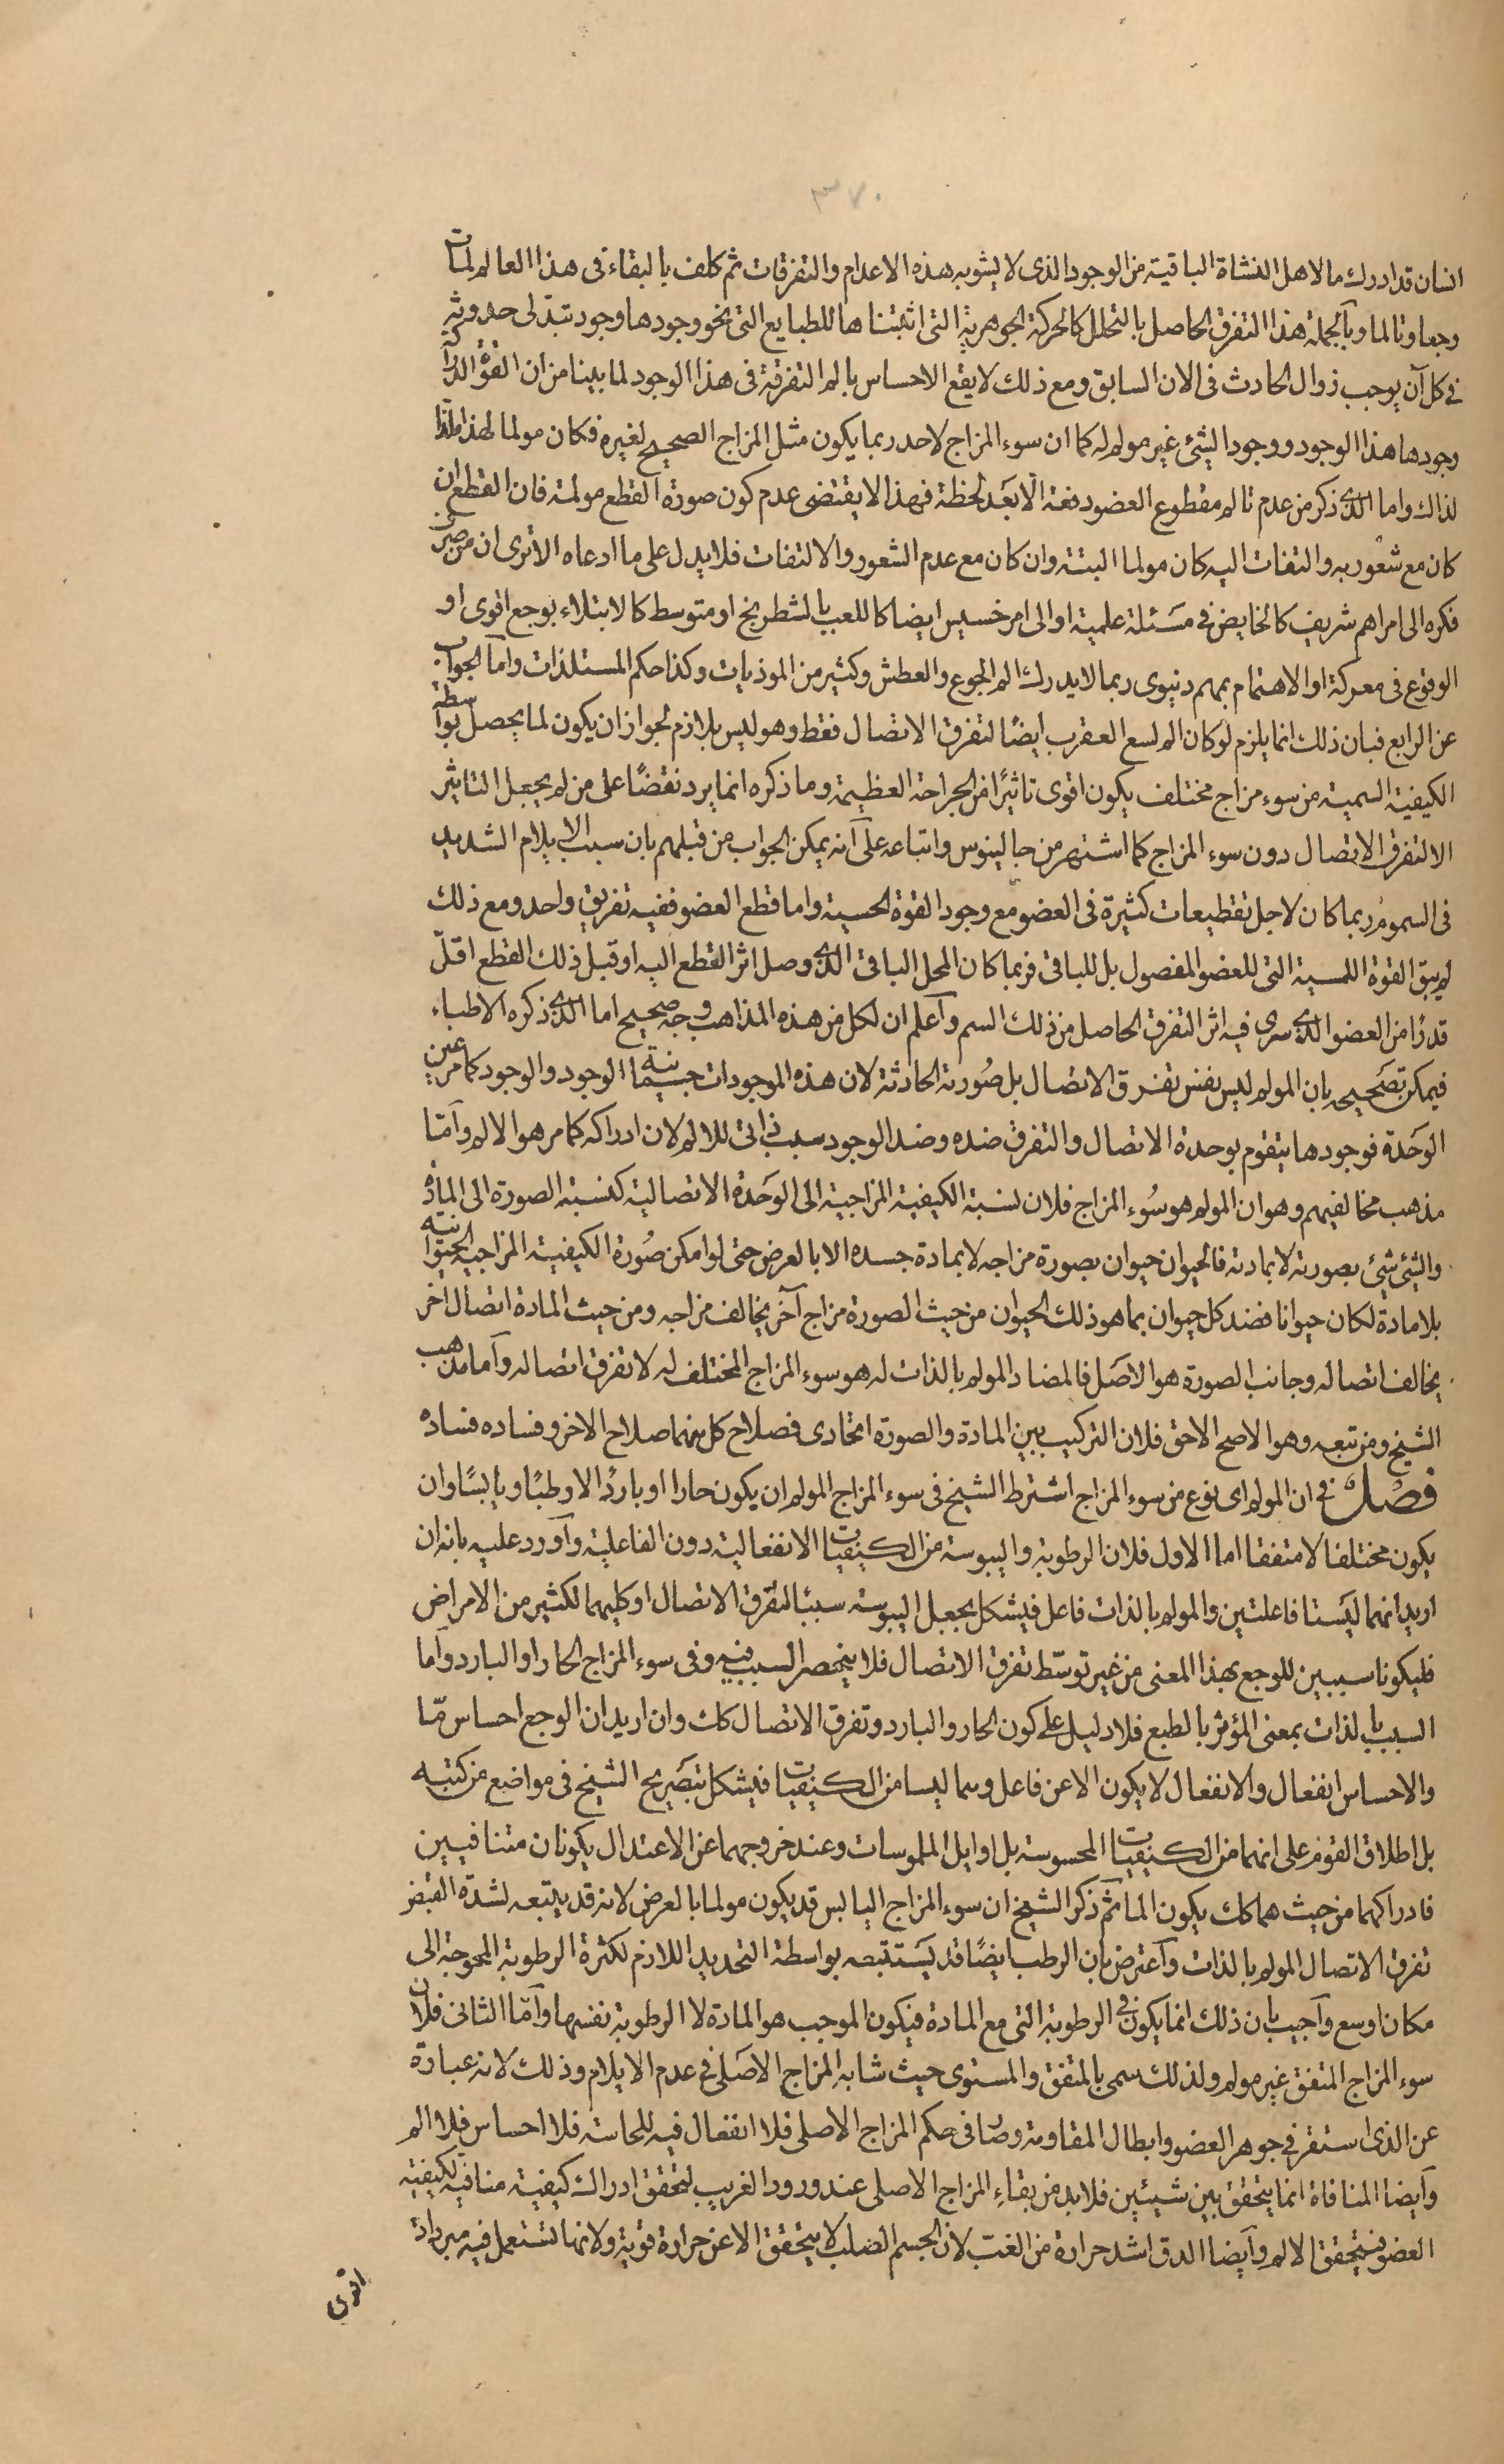 ٣٧٠
انسان قد ادرك ما لاهل النشاة الباقية من الوجود الذى لا يشوبه هذه الاعدام والتفرقات ثم كلف بالبقاء فى هذا العالم لمات
وجعا وتالما وبالجملة هذا التفرق الحاصل بالتحلل كالحركة الجوهرية التى اثبتناها للطبايع التى نحو وجودها وجود تبدلى حدوثه
فى كل آن يوجب زوال الحادث فى الان السابق ومع ذلك لا يقع الاحساس بالم التفرقة فى هذا الوجود لما بينا من ان القوة الدراكة
وجودها هذا الوجود ووجود الشئ غير مولم له كما ان سوء المزاج لاحد ربما يكون مثل المزاج الصحيح لغيره فكان مولما لهذا ملذا
لذاك واما الذى ذكر من عدم تالم مقطوع العضو دفعة الا بعد لحظة فهذا لا يقتضى عدم كون صورة القطع مولمة فان القطع ان
كان مع شعور به والتفات اليه كان مولما البتة وان كان مع عدم الشعور والالتفات فلا يدل على ما ادعاه الا ترى ان من صرف
فكره الى امر اهم شريف كالخايض فى مسئلة علمية او الى امر خسيس ايضا كاللعب بالشطرنج او متوسط كالابتلاء بوجع اقوى او
الوقوع فى معركة او الاهتمام بمهم دنيوى ربما لا يدرك الم الجوع والعطش وكثير من الموذيات وكذا حكم المستلذات واما الجواب
عن الرابع فبان ذلك انما يلزم لو كان الم لسع العقرب ايضا لتفرق الاتصال فقط وهو ليس بلازم لجواز ان يكون لما يحصل بواسطة
الكيفية السمية من سوء مزاج مختلف يكون اقوى تاثيرا من الجراحة العظيمة وما ذكره انما يرد نقضا على من لم يجعل التاثير
الا لتفرق الاتصال دون سوء المزاج كما اشتهر من جالينوس واتباعه على انه يمكن الجواب من قبلهم بان سبب الايلام الشديد
فى السموم ربما كان لاجل تقطيعات كثيرة فى العضو مع وجود القوة الحسية واما قطع العضو ففيه تفريق واحد ومع ذلك
لم يبق القوة اللمسية التى للعضو المفصول بل للباقى فربما كان المحل الباقى الذى وصل اثر القطع اليه او قبل ذلك القطع اقل
قدرا من العضو الذى سرى فيه اثر التفرق الحاصل من ذلك السم واعلم ان لكل من هذه المذاهب وجه صحيح اما الذى ذكره الاطباء
فيمكن تصحيحه بان المولم ليس نفس تفرق الاتصال بل صورته الحادثة لان هذه الموجودات جسمانية الوجود والوجود كما مر عين
الوحدة فوجودها يتقوم بوحدة الاتصال والتفرق ضده وضد الوجود سبب ذاتى للالم لان ادراكه كما مر هو الالم واما
مذهب مخالفيهم وهو ان المولم هو سوء المزاج فلان نسبة الكيفية المزاجية الى الوحدة الاتصالية كنسبة الصورة الى المادة
والشئ شئ بصورته لا بمادته فالحيوان حيوان بصورة مزاجه لا بمادة جسده الا بالعرض حتى لو امكن صورة الكيفية المزاجية الحيوانية
بلا مادة لكان حيوانا فضد كل حيوان بما هو ذلك الحيوان من حيث الصورة مزاج آخر يخالف مزاجه ومن حيث المادة اتصال اخر
يخالف اتصاله وجانب الصورة هو الاصل فالمضاد المولم بالذات له هو سوء المزاج المختلف له لا تفرق اتصاله واما مذهب
الشيخ ومن تبعه وهو الاصح الاحق فلان التركيب بين المادة والصورة اتحادى فصلاح كل منهما صلاح الاخر وفساده فساده
فصل فى ان المولم اى نوع من سوء المزاج اشترط الشيخ فى سوء المزاج المولم ان يكون حارا او باردا لا رطبا ويابسا وان
يكون مختلفا لا متفقا اما الاول فلان الرطوبة واليبوسة من الكيفيات الانفعالية دون الفاعلية واورد عليه بانه ان
اريد انهما ليستا فاعلتين والمولم بالذات فاعل فيشكل بجعل اليبوسة سببا لتفرق الاتصال او كليهما لكثير من الامراض
فليكونا سببين للوجع بهذا المعنى من غير توسط تفرق الاتصال فلا ينحصر السبب فيه وفى سوء المزاج الحار او البارد واما
السبب بالذات بمعنى المؤثر بالطبع فلا دليل على كون الحار والبارد وتفرق الاتصال كك وان اريد ان الوجع احساس ما
والاحساس انفعال والانفعال لا يكون الا عن فاعل وهما ليسا من الكيفيات فيشكل بتصريح الشيخ فى مواضع من كتبه
بل اطلاق القوم على انهما من الكيفيات المحسوسة بل اوايل الملموسات وعند خروجهما عن الاعتدال يكونان متنافيين
فادراكهما من حيث هما كك يكون الما ثم ذكر الشيخ ان سوء المزاج اليابس قد يكون مولما بالعرض لانه قد يتبعه لشدة القبض
تفرق الاتصال المولم بالذات واعترض بان الرطب ايضا قد يستتبعه بواسطة التمديد اللازم لكثرة الرطوبة المحوجة الى
مكان اوسع واجيب بان ذلك انما يكون فى الرطوبة التى مع المادة فيكون الموجب هو المادة لا الرطوبة نفسها واما الثانى فلان
سوء المزاج المتفق غير مولم ولذلك سمى بالمتفق والمستوى حيث شابه المزاج الاصلى فى عدم الايلام وذلك لانه عبارة
عن الذى استقر فى جوهر العضو وابطال المقاومة وصار فى حكم المزاج الاصلى فلا انفعال فيه للحاسة فلا احساس فلا الم
وايضا المنافاة انما يتحقق بين شيئين فلابد من بقاء المزاج الاصلى عند ورود الغريب ليتحقق ادراك كيفية منافية لكيفية
العضو فيتحقق الالم وايضا الدق اشد حرارة من الغب لان الجسم الصلب لا يتحقق الا عن حرارة قوية ولانها تستعمل فيه مبردات
اقوى